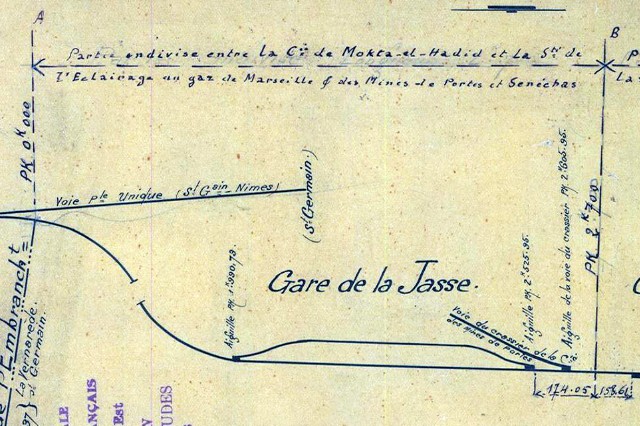 A
B
Partie endivise entre la Cie de Mokta-el-Hadid et la Sté de
l'Eclairage au gaz de Marseille & des Mines de Portes et Senéchas
La
PK 0k000
Voie ple Unique (St Gain Nimes)
(St Germain.)
Gare de la Jasse.
Aiguille PK. 1k990,79.
Aiguille PK. 2k525.95.
Aiguille de la voie du crassier PK. 2k605.95.
PK 2k700
Voie du crassier de la
des Mines de Portes
174.05
Embrancht
La Vernarède
St Germain.
ANÇAIS
Est
UDES